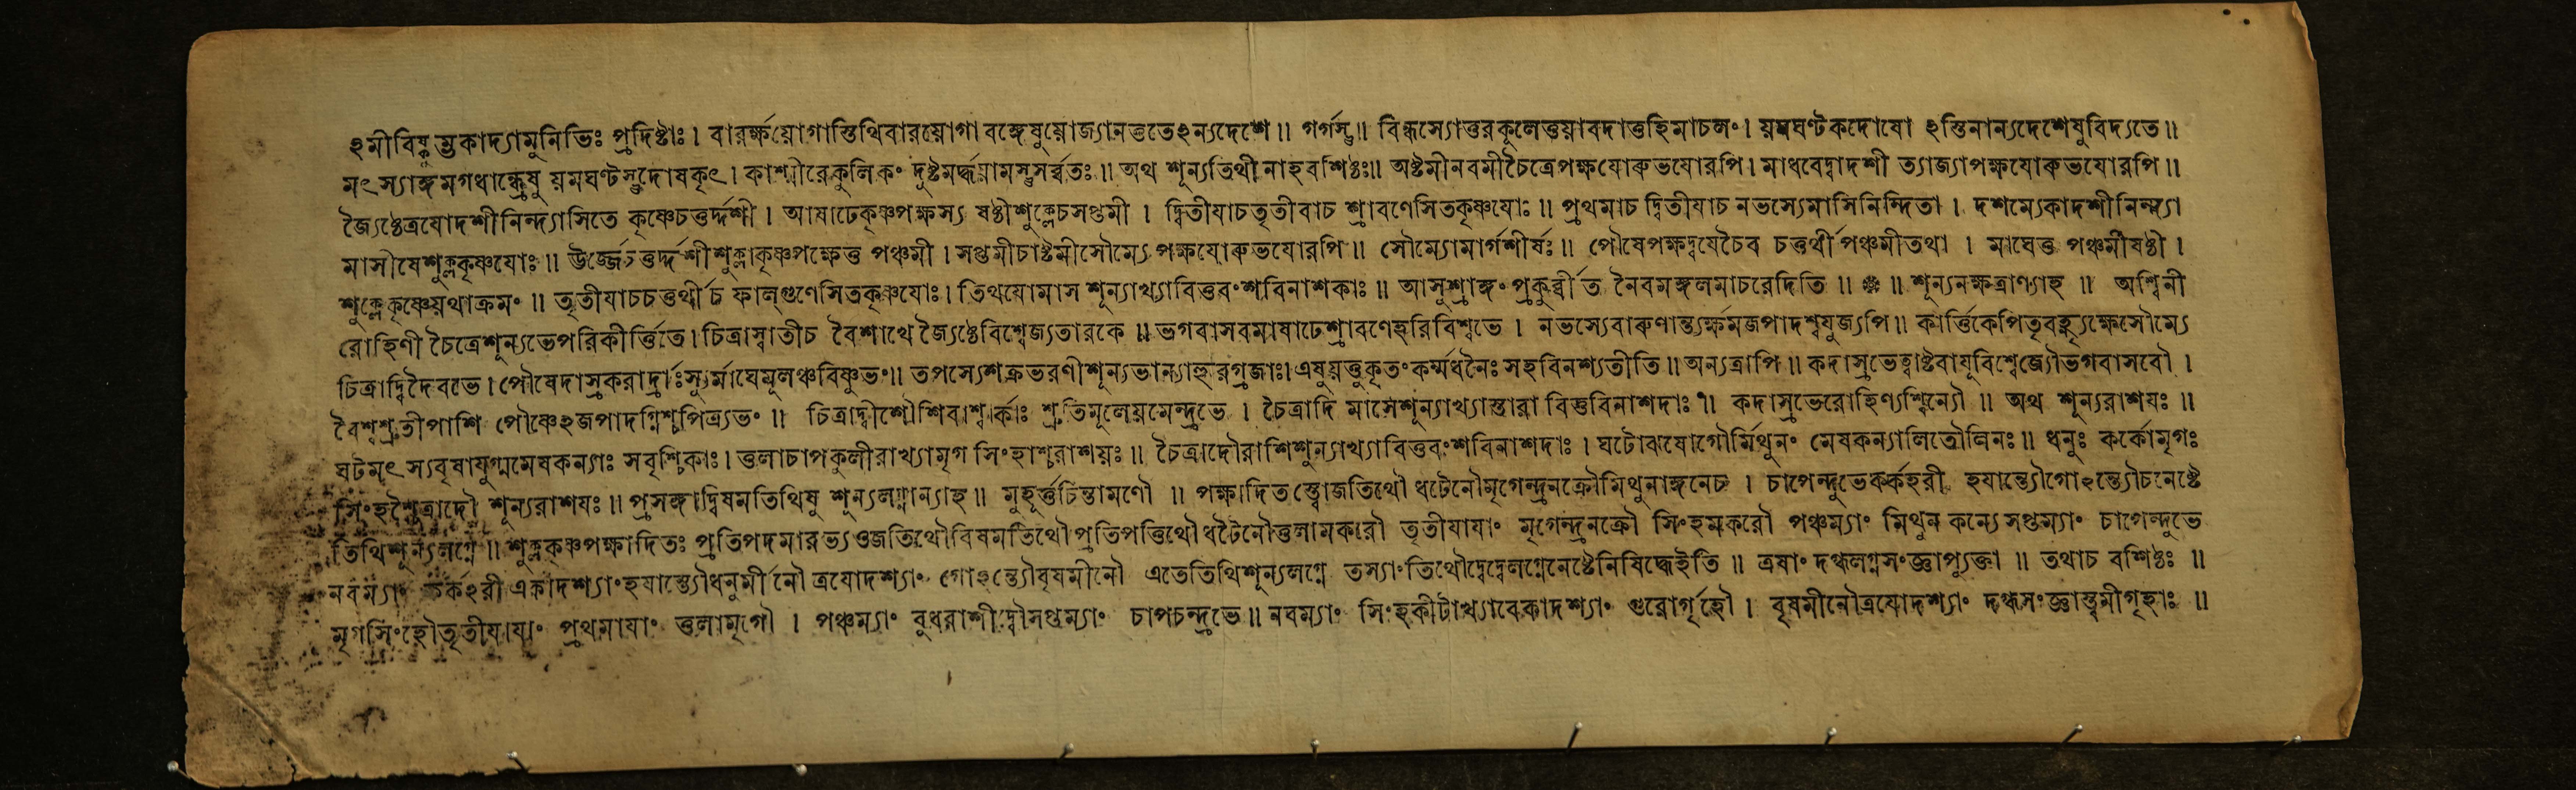 ঽমীবিষ্কুম্ভকাদ্যামুনিভিঃ প্রদিষ্টাঃ। বারর্ক্ষয়োগাস্তিথিবারয়োগা বঙ্গেষুয়োজ্যানতুতেঽন্যদেশে॥ গর্গস্তু॥ বিন্ধস্যোত্তরকূলেতুয়াবদাতুহিমাচলং। য়মঘণ্টকদোষো ঽস্তিনান্যদেশেষুবিদ্যতে॥
মৎস্যাঙ্গমগধান্ধ্রেষু য়মঘণ্টস্তুদোষকৃৎ। কাশ্মীরেকুলিকং দুষ্টমর্দ্ধয়ামস্তুসর্ব্বতঃ॥ অথ শূন্যতিথীনাহবশিষ্ঠঃ॥ অষ্টমীনবমীচৈত্রেপক্ষযোরুভযোরপি। মাধবেদ্বাদশী ত্যাজ্যাপক্ষযোরুভযোরপি॥
জ্যৈষ্ঠেত্রযোদশীনিন্দ্যাসিতে কৃষ্ণেচতুর্দ্দশী। আষাঢেকৃষ্ণপক্ষস্য ষষ্ঠীশুক্লেচসপ্তমী। দ্বিতীযাচতৃতীবাচ শ্রাবণেসিতকৃষ্ণযোঃ॥ প্রথমাচ দ্বিতীযাচ নভস্যেমাসিনিন্দিতা। দশম্যেকাদশীনিন্দ্যা
মাসীষেশুক্লকৃষ্ণযোঃ॥ ঊর্জ্জেচতুর্দ্দশীশুক্লাকৃষ্ণপক্ষেতু পঞ্চমী। সপ্তমীচাষ্টমীসৌম্যে পক্ষযোরুভযোরপি॥ সৌম্যোমার্গশীর্ষঃ॥ পৌষেপক্ষদ্বযেচৈব চতুর্থীপঞ্চমীতথা। মাঘেতু পঞ্চমীষষ্ঠী।
শুক্লেকৃষ্ণেয়থাক্রমং॥ তৃতীযাচচতুর্থীচ ফাল্গুণেসিতকৃষ্ণযোঃ। তিথযোমাস শূন্যাখ্যাবিত্তবংশবিনাশকাঃ॥ আসুশ্রাদ্ধং প্রকুর্ব্বীত নৈবমঙ্গলমাচরেদিতি॥ ❁ ॥ শূন্যনক্ষত্রাণ্যাহ॥ অশ্বিনী
রোহিণী চৈত্রেশূন্যভেপরিকীর্ত্তিতে। চিত্রাস্বাতীচ বৈশাখে জ্যৈষ্ঠেবিশ্বেজ্যতারকে॥ ভগবাসবমাষাঢেশ্রাবণেহরিবিশ্বভে। নভস্যেবারুণান্ত্যর্ক্ষমজপাদশ্বযুজ্যপি॥ কার্ত্তিকেপিতৃবহ্ন্যৃক্ষেসৌম্যে
চিত্রাদ্বিদৈবভে। পৌষেদাস্রকরার্দ্রাঃস্যুর্মাঘেমূলঞ্চবিষ্ণুভং॥ তপস্যেশক্রভরণীশূন্যভান্যাহুরগ্রজাঃ। এষুয়ত্তুকৃতংকর্ম্মধনৈঃ সহবিনশ্যতীতি॥ অন্যত্রাপি॥ কদাস্রভেত্বাষ্টবাযূবিশ্বেজ্যৌভগবাসবৌ।
বৈশ্বশ্রুতীপাশি পৌষ্ণেঽজপাদগ্নিশ্চপিত্র্যভং॥ চিত্রাদ্বীশৌশিবাশ্বার্কাঃ শ্রুতিমূলেয়মেন্দ্রভে। চৈত্রাদি মাসেশূন্যাখ্যাস্তারা বিত্তবিনাশদাঃ॥ কদাস্রভেরোহিণ্যশ্বিন্যৌ॥ অথ শূন্যরাশযঃ॥
ঘটমৎস্যবৃষাযুগ্মমেষকন্যাঃ সবৃশ্চিকাঃ। তুলাচাপকুলীরাখ্যামৃগ সিংহাশ্চরাশয়ঃ॥ চৈত্রাদৌরাশিশূন্যাখ্যাবিত্তবংশবিনাশদাঃ। ঘটোঝষোগৌর্মিথুনং মেষকন্যালিতৌলিনঃ॥ ধনুঃ কর্কোমৃগঃ
সিংহশ্চৈত্রাদৌ শূন্যরাশযঃ॥ প্রসঙ্গাদ্বিষমতিথিষু শূন্যলগ্নান্যাহ॥ মুহূর্ত্তচিন্তামণৌ॥ পক্ষাদিতস্ত্বোজতিথৌ ধটেনৌমৃগেন্দ্রনক্রৌমিথুনাঙ্গনেচ। চাপেন্দুভেকর্কহরী হযান্ত্যৌগোঽন্ত্যৌচনেষ্টে
তিথিশূন্যলগ্নে॥ শুক্লকৃষ্ণপক্ষাদিতঃ প্রতিপদমারভ্যওজতিথৌবিষমতিথৌপ্রতিপত্তিথৌধটৈনৌতুলামকরৌ তৃতীযাযাং মৃগেন্দ্রনক্রৌ সিংহমকরৌ পঞ্চম্যাং মিথুন কন্যে সপ্তম্যাং চাপেন্দুভে
নবম্যাং কর্কহরী একাদশ্যাংহযান্ত্যৌধনুর্মীনৌ ত্রযোদশ্যাং গোঽন্ত্যৌবৃষমীনৌ এতেতিথিশূন্যলগ্নে তস্যাংতিথৌদ্বেদ্বেলগ্নেনেষ্টেনিষিদ্ধেইতি॥ ত্রষাং দগ্ধলগ্নসংজ্ঞাপ্যুক্তা॥ তথাচ বশিষ্ঠঃ॥
মৃগসিংহৌতৃতীযাযাং প্রথমাযাং তুলামৃগৌ। পঞ্চম্যাং বুধরাশীদ্বৌসপ্তম্যাং চাপচন্দ্রভে॥ নবম্যাং সিংহকীটাখ্যাবেকাদশ্যাং গুরোর্গৃহৌ। বৃষমীনৌত্রযোদশ্যাং দগ্ধসংজ্ঞাস্ত্বমীগৃহাঃ॥